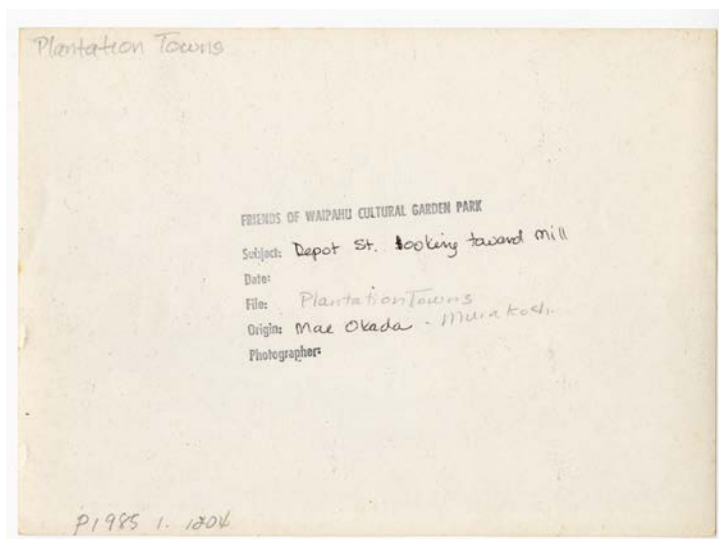 Plantation Towns
FRIENDS OF WAIPAHU CULTURAL GARDEN PARK
Subject: Depot St. looking toward mill
Date:
File: Plantation Towns
Origin: Mae Okada - Murakoshi
Photographer:
P1985 1. 1204